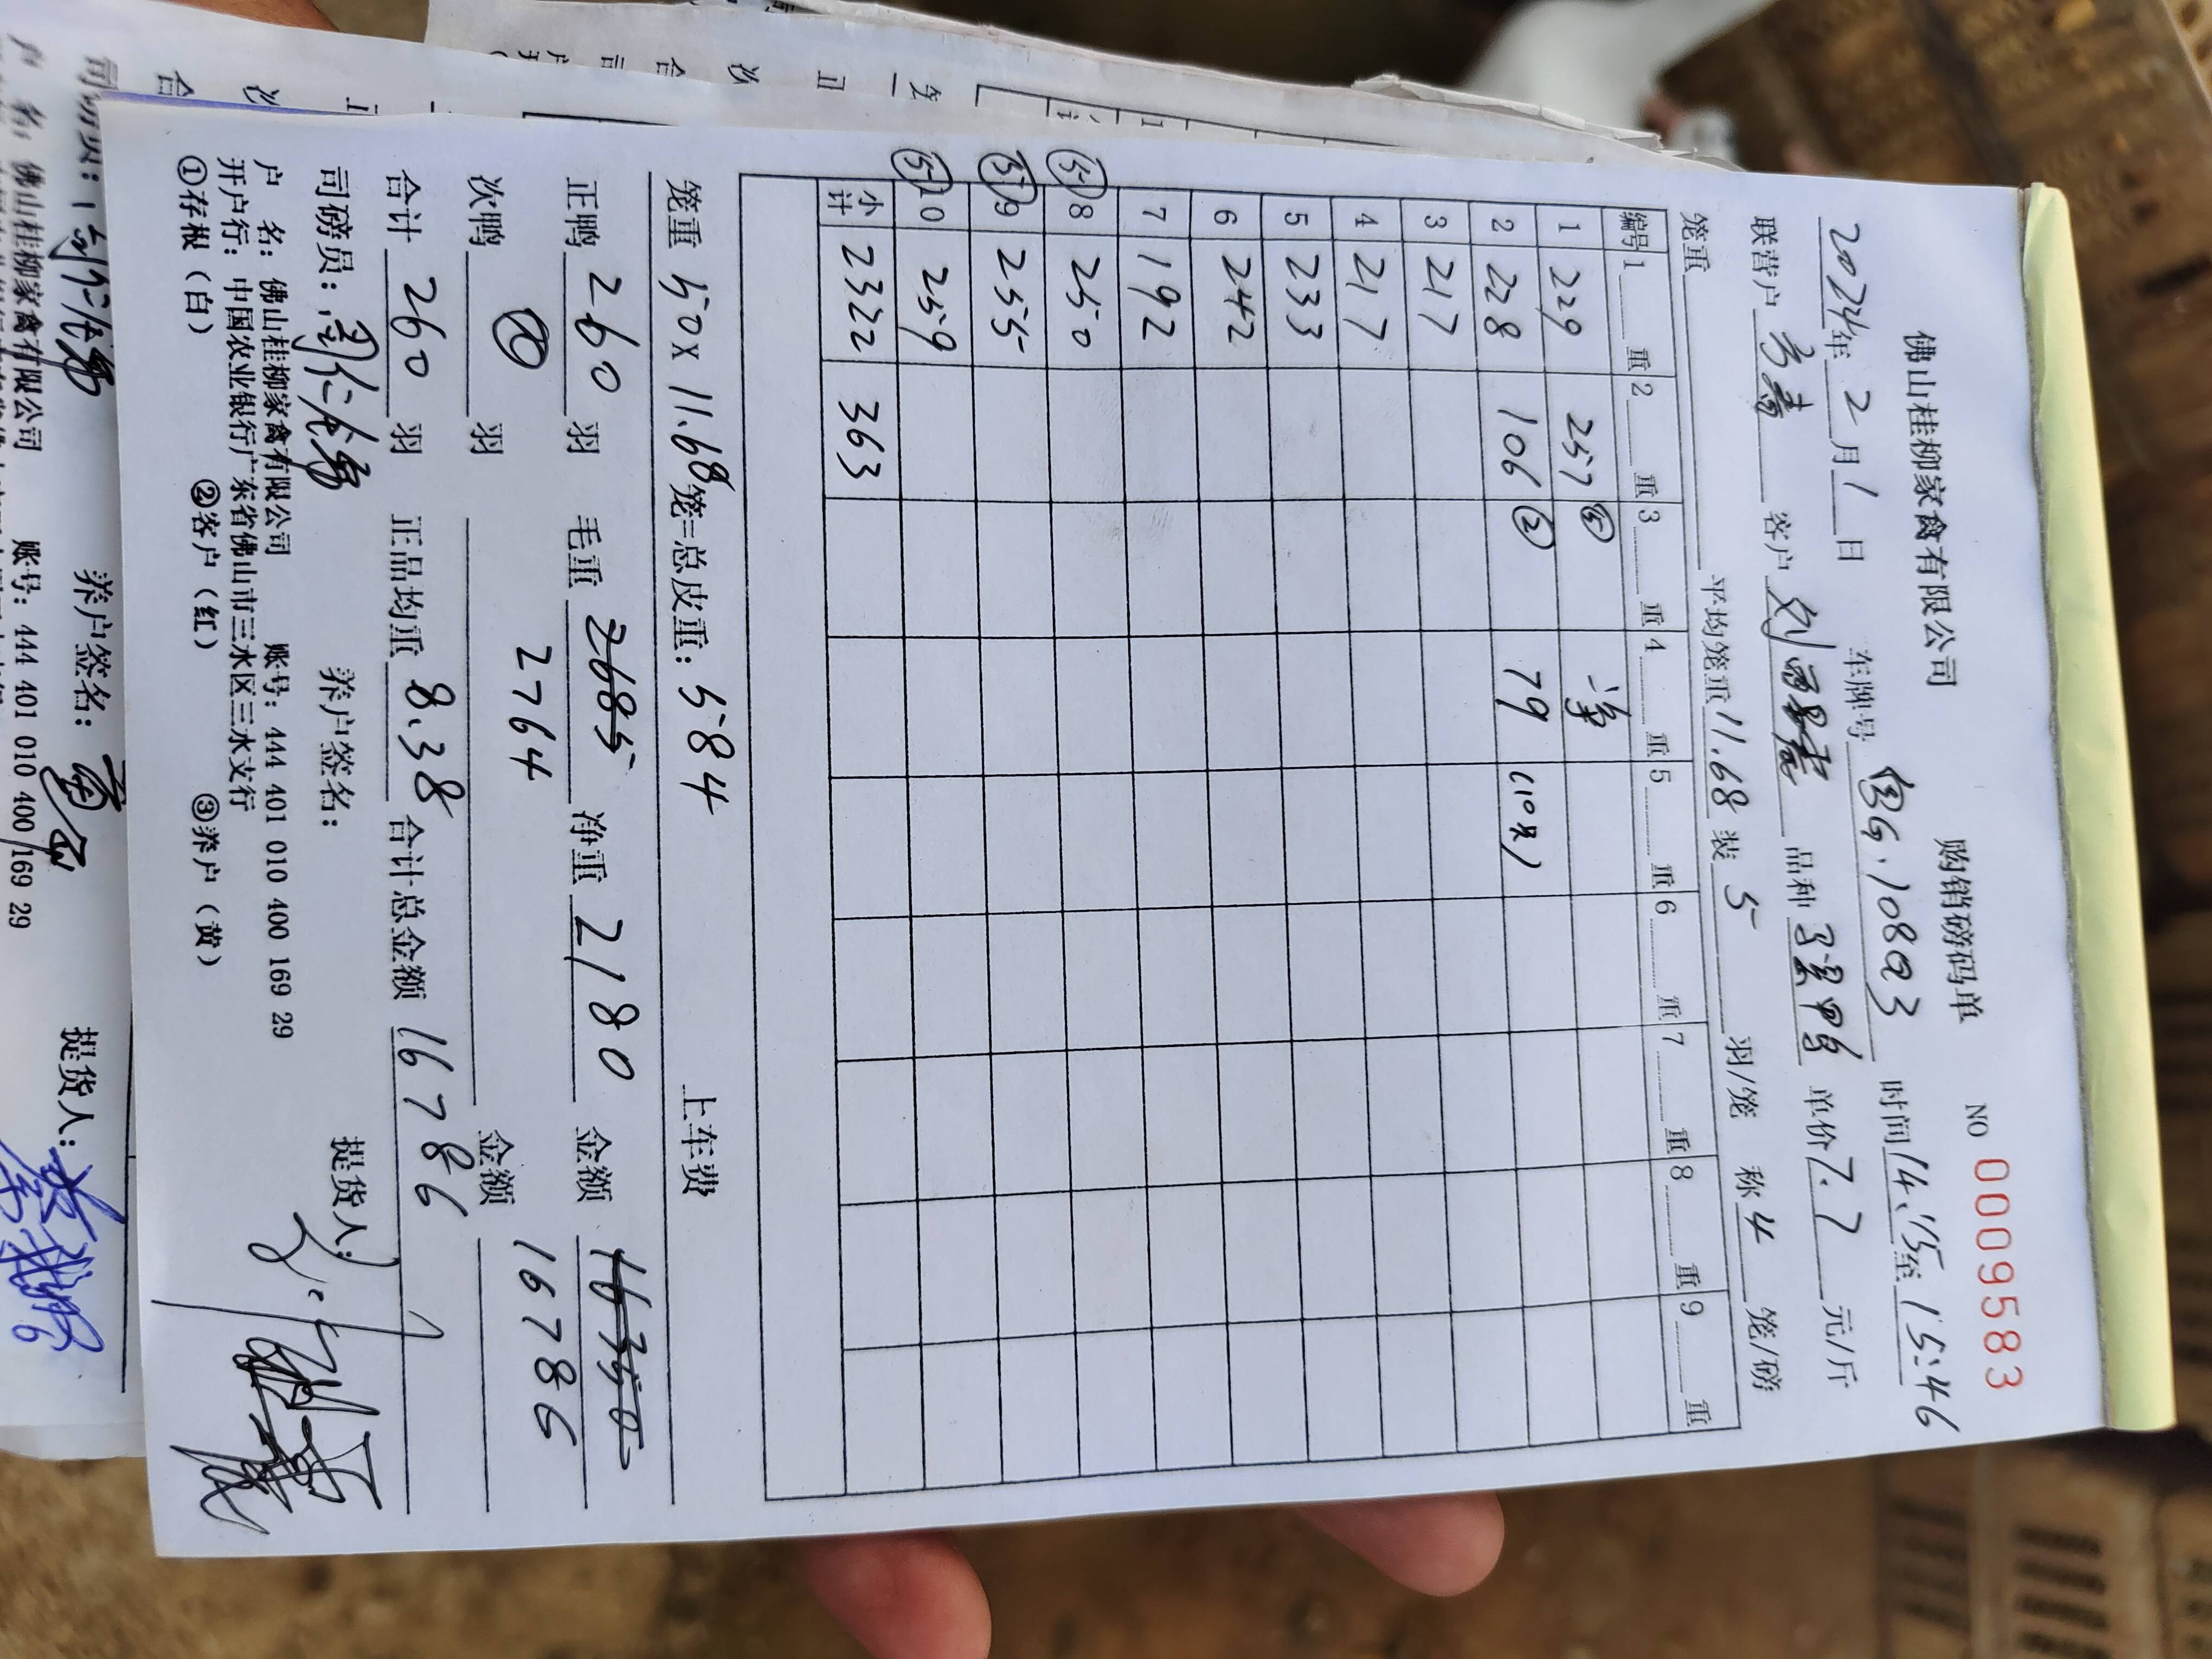 佛山桂柳家禽有限公司 购销磅码单 NO 0009583
2024年2月1日 车牌号 G·108Q3 时间14:15至15:46
联营户 客户 刘 品种 鸭 单价7.7元/斤
笼重 平均笼重11.68装5羽/笼 称4笼/磅
编号 1 重 2 重 3 重 4 重 5 重 6 重 7 重 8 重 9 重
1 229 257⑤ 单
2 228 106② 79 (10只)
3 217
4 217
5 233
6 242
7 192
⑤ 8 250
⑤ 9 255
⑤ 10 259
小计 2322 363
笼重50×11.68笼=总皮重:584 上车费
正鸭260羽 毛重2685 净重2180 金额16350
2764 16786
次鸭 羽 金额
合计260羽 正品均重8.38 合计总金额16786
司磅员: 养户签名: 提货人:
户 名:佛山桂柳家禽有限公司 账号:444 401 010 400 169 29
开户行:中国农业银行广东省佛山市三水区三水支行
①存根(白) ②客户(红) ③养户(黄)
司磅员: 养户签名: 提货人:
户 名:佛山桂柳家禽有限公司 账号:444 401 010 400 169 29